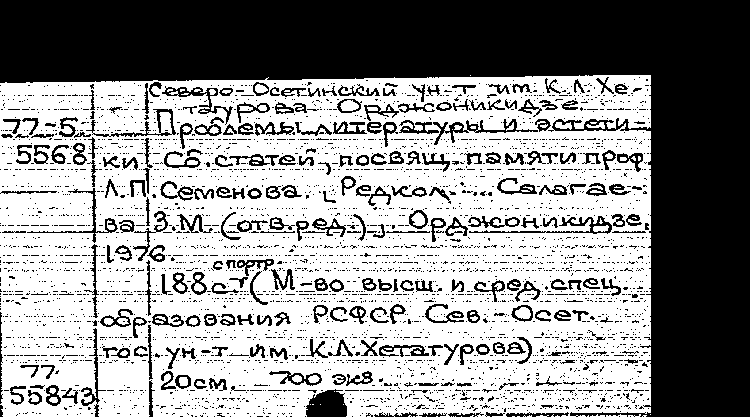 Северо-Осетинский ун-т им. К.Л.Хе-
тагурова. Орджоникидзе.
77-5
5568
Проблемы литературы и эстети-
ки. Сб.статей, посвящ. памяти проф.
Л.П.Семенова. [Редкол.: ... Салагае-
ва З.М. (отв.ред.)]. Орджоникидзе,
1976.
188 с. с портр. (М-во высш. и сред. спец.
образования РСФСР. Сев.-Осет.
гос. ун-т им. К.Л.Хетагурова)
20см. 700 экз.
77
55843